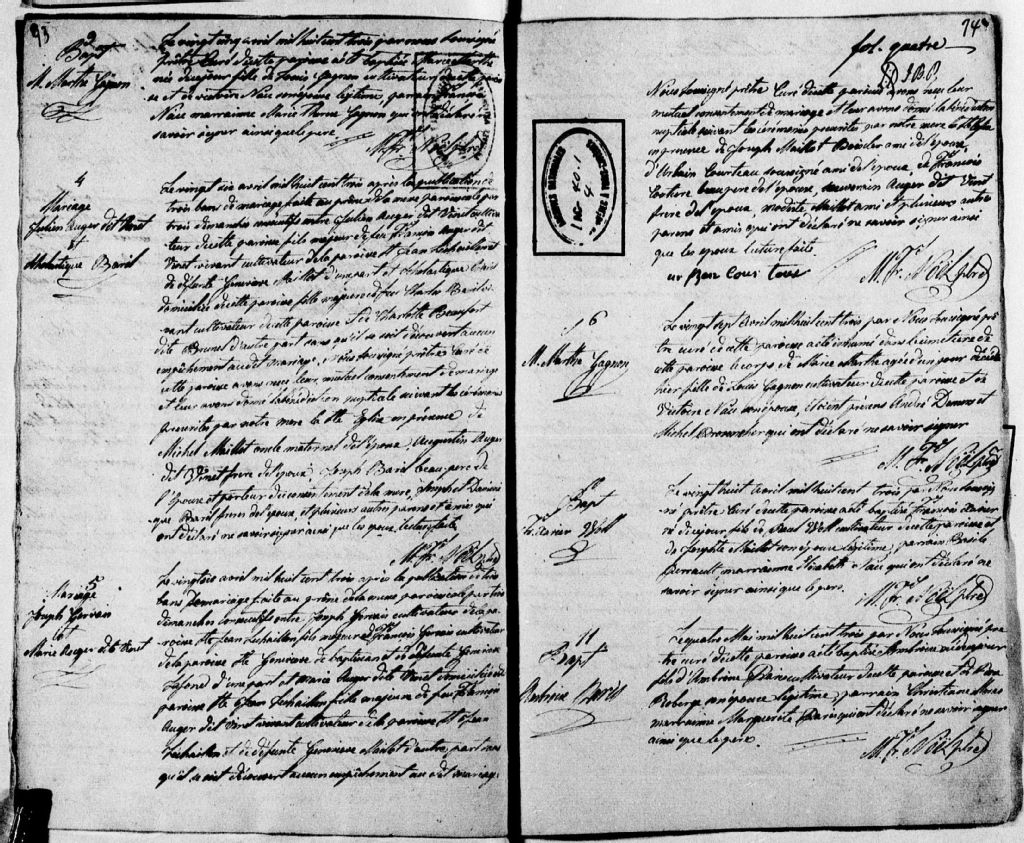 93
9
Bapt
M. Marthe Gagnon
Le vingt cinq avril mil huit cent trois par nous soussigné
prêtre curé de cette paroisse a été baptisée Marie Marthe
née de ce jour fille de Louis Gagnon cultivateur de cette parois
se et de victoire Nau son épouse légitime, parrain
Nau marraine Marie Therese Gagnon qui ont déclaré ne
savoir signer ainsi que le pere.
M. Fr. Noël ptre
4
Mariage
Julien Auger dit Vinet
et
Scholastique Baril
Le vingt six avril mil huit cent trois après la publication de
trois bans de mariage faite au prône de la messe paroissiale par
trois dimanches consécutifs entre Julien Auger dit Vinet cultiva
teur de cette paroisse fils majeur de feu François Auger dit
Vinet vivant cultivateur de la paroisse St Jean Dechaillons et
de défunte Genevieve Maillot d'une part et Scholastique Baril
domiciliée de cette paroisse fille majeure de feu Charles Baril vi
vant cultivateur de cette paroisse et de Charlotte Beaufort
dite Brunel d'autre part sans qu'il se soit découvert aucun
empêchement au dit mariage, nous soussigné prêtre curé de
cette paroisse avons reçu leur mutuel consentement de mariage
et leur avons donné la bénédiction nuptiale suivant les cérémonies
prescrites par notre mere la Ste Eglise en présence de
Michel Maillot oncle maternel de l'époux, Augustin Auger
dit Vinet frere de l'époux, Joseph Baril beau-pere de
l'épouse et porteur du consentement de la mere, Joseph et Domini
que Baril freres de l'épouse et plusieurs autres parens et amis qui
ont déclaré ne savoir signer ainsi que les epoux, lecture faite
M. Fr. Noël ptre
5
Mariage
Joseph Gervais
et
Marie Auger dite Vinet
Le vingt six avril mil huit cent trois après la publication de trois
bans de mariage faite au prône de la messe paroissiale par trois
dimanches consecutifs entre Joseph Gervais cultivateur de la pa
roisse St Jean Dechaillons fils majeur de François Gervais cultivateur
de la paroisse Ste Genevieve de batiscan et de défunte Genevieve
Lafond d'une part et Marie Auger dite Vinet domiciliée de la
paroisse St Jean Dechaillons fille majeure de feu François
Auger dit Vinet vivant cultivateur de la paroisse St Jean
Dechaillons et de défunte Genevieve Maillot d'autre part sans
qu'il se soit découvert aucun empêchement au dit mariage,
94
fol. quatre
J.B.P.
Nous soussigné prêtre curé de cette paroisse avons reçu leur
mutuel consentement de mariage et leur avons donné la bénédiction
nuptiale suivant les cérémonies prescrites par notre mere la Ste Eglise
en présence de Joseph Maillot ami de l'époux,
d'Urbain Courteau soussigné ami de l'époux, de François
beau pere de l'épouse, Auger dit Vinet
frere de l'épouse, modeste Maillot ami et plusieurs autres
parens et amis qui ont déclaré ne savoir signer ainsi
que les époux lecture faite
M. Fr. Noël ptre
ARCHIVES NATIONALES
6
M. Marthe Gagnon
Le vingt sept avril mil huit cent trois par Nous soussigné prê
tre curé de cette paroisse a été inhumé dans le cimetiere de
cette paroisse le corps de Marie Marthe agée d'un jour décédée
hier fille de Louis Gagnon cultivateur de cette paroisse et de
Victoire Nau son épouse, étoient présens André Demers et
Michel qui ont déclaré ne savoir signer
M. Fr. Noël ptre
Bapt
Fr. Xavier Woll
Le vingt huit avril mil huit cent trois par Nous soussig
né prêtre Curé de cette paroisse a été baptisé François Xavier
né de ce jour fils de Woll cultivateur de cette paroisse et
de Josephte Maillot son épouse légitime, parrain Basile
Perrault, marraine Elizabeth Nau qui ont déclaré ne
savoir signer ainsi que le pere.
M. Fr. Noël ptre
11
Bapt
Ambroise Paris
Le quatre Mai mil huit cent trois par Nous soussigné prê
tre curé de cette paroisse a été baptisé Ambroise né d'hier
fils d'Ambroise Paris cultivateur de cette paroisse et de
Roberge son épouse légitime, parrain Christianne
marraine Marguerite Paris qui ont déclaré ne savoir signer
ainsi que le pere.
M. Fr. Noël ptre